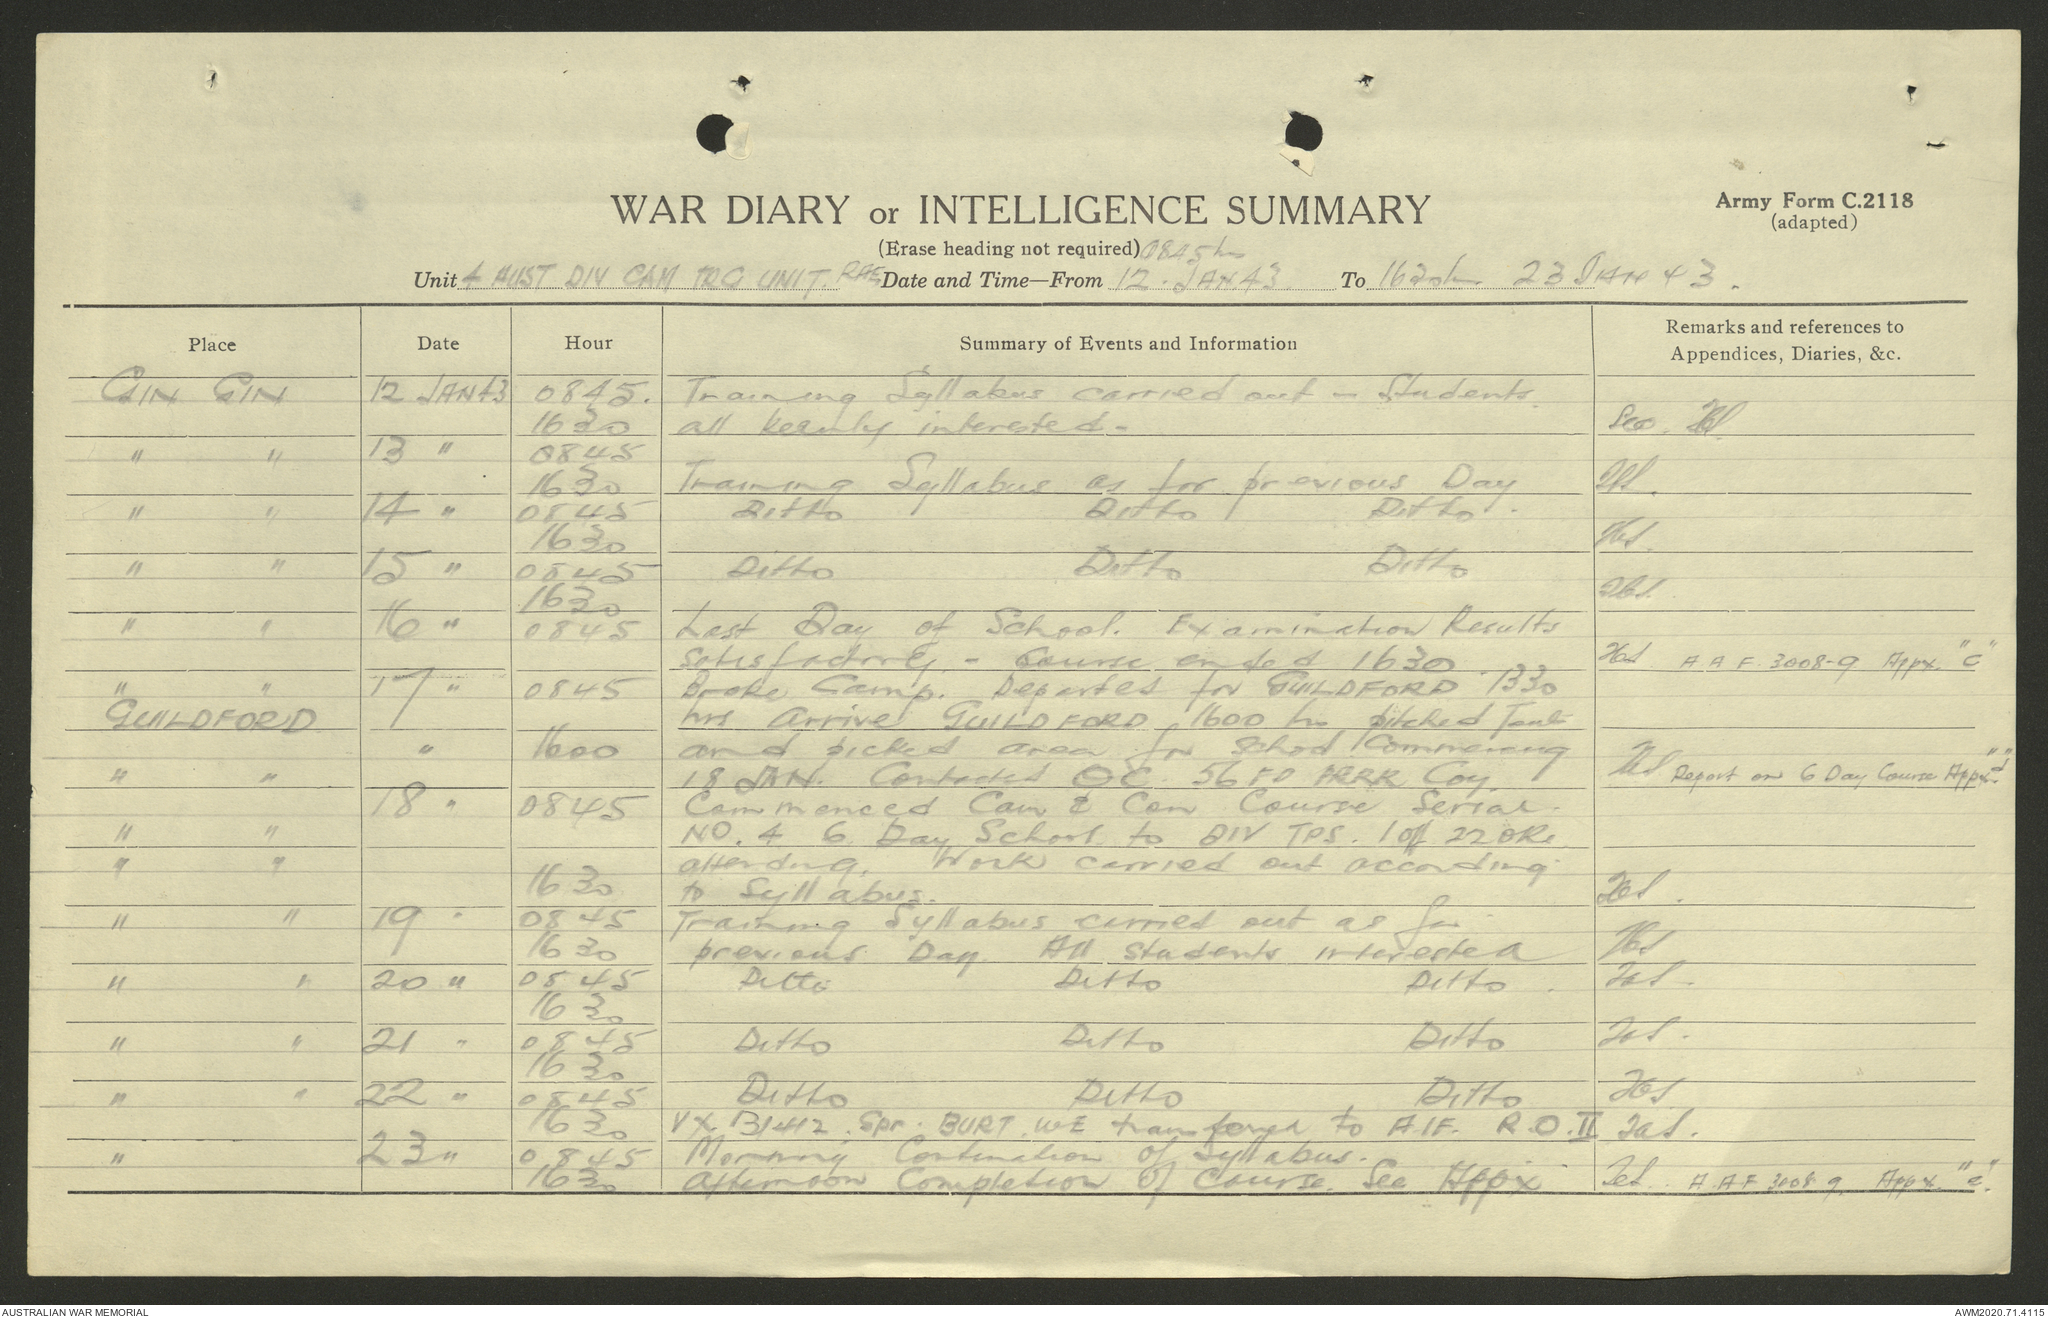 WAR DIARY or INTELLIGENCE SUMMARY
Army Form C.2118
(adapted)
(Erase heading not required) 0845 hrs
Unit 4 AUST DIV CAM TRG UNIT. RAE Date and Time—From 12. JAN 43. To 1630 hrs. 23 JAN 43.
Place Date Hour Summary of Events and Information Remarks and references to Appendices, Diaries, &c.
GIN GIN 12 JAN 43 0845. Training Syllabus carried out - Students
1630 all keenly interested -
" " 13 " 0845
1630 Training Syllabus as for previous Day
" " 14 " 0845 Ditto Ditto Ditto.
1630
" " 15 " 0845 Ditto Ditto Ditto
1630
" " 16 " 0845 Last Day of School. Examination Results
satisfactory. - Course ended 1630 A.A.F. 3008-9 Appx. "C"
" " 17 " 0845 Broke Camp. Departed for GUILDFORD 1330
GUILDFORD hrs Arrive GUILDFORD 1600 hrs pitched Tents
" 1600 and picked area for School Commencing
" " 18 JAN. Contacted OC. 56 FD PARK Coy. Report on 6 Day Course Appx. "d"
18 " 0845 Commenced Cam & Con Course Serial
" " NO. 4 6 Day School to DIV TPS. 1 off 22 ORs
" " attending. Work carried out according
1630 to Syllabus.
" " 19 " 0845 Training Syllabus carried out as for
1630 previous Day. All students interested
" " 20 " 0845 Ditto Ditto Ditto.
1630
" " 21 " 0845 Ditto Ditto Ditto
1630
" " 22 " 0845 Ditto Ditto Ditto
1630 VX 131412. Spr. BURT. WE transferred to A.I.F. R.O. II
" 23 " 0845 Morning Continuation of Syllabus.
1630 Afternoon Completion of Course. See Appx A.A.F 3008-9. Appx. "e".
AUSTRALIAN WAR MEMORIAL
AWM2020.71.4115